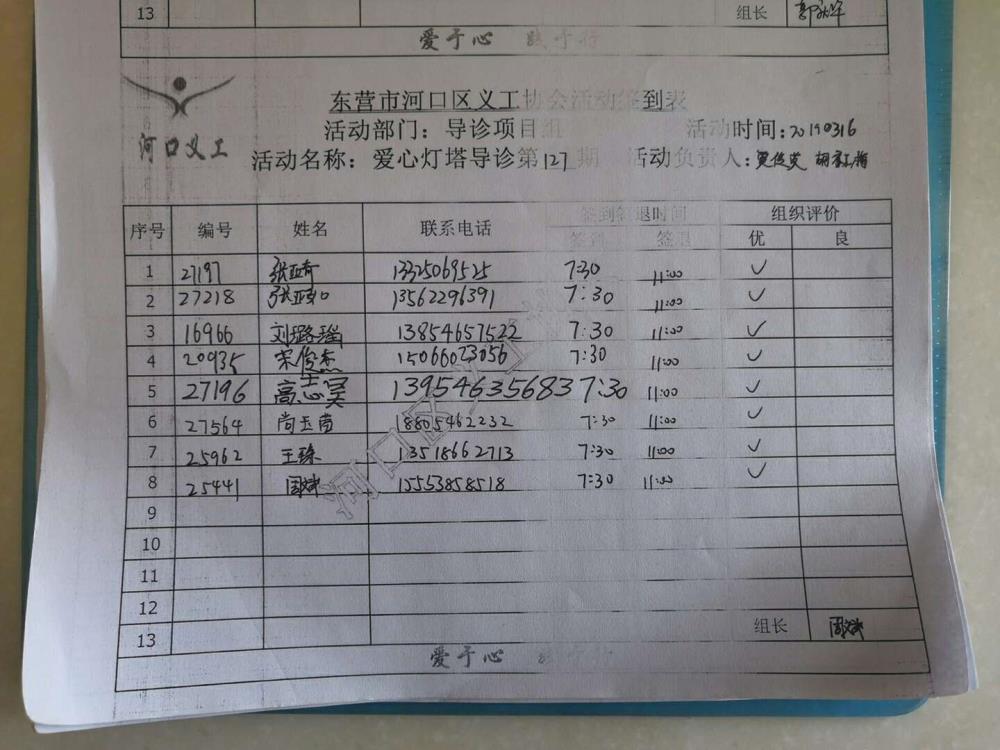 13 组长
爱于心 践于行
河口义工
东营市河口区义工协会活动签到表
活动部门：导诊项目组 活动时间：20190316
活动名称：爱心灯塔导诊第127期 活动负责人：
序号 编号 姓名 联系电话 签到签退时间 组织评价
签到 签退 优 良
1 27197 13325069525 7:30 11:00 ✓
2 27218 13562296391 7:30 11:00 ✓
3 16966 刘璐瑶 13854657522 7:30 11:00 ✓
4 20935 宋俊杰 15066023056 7:30 11:00 ✓
5 27196 高志昊 13954635683 7:30 11:00 ✓
6 27564 尚玉苗 18805462232 7:30 11:00 ✓
7 25962 王臻 13518662713 7:30 11:00 ✓
8 25441 周斌 15553858518 7:30 11:00 ✓
9
10
11
12
13 组长 周斌
爱于心 践于行
河口区义工